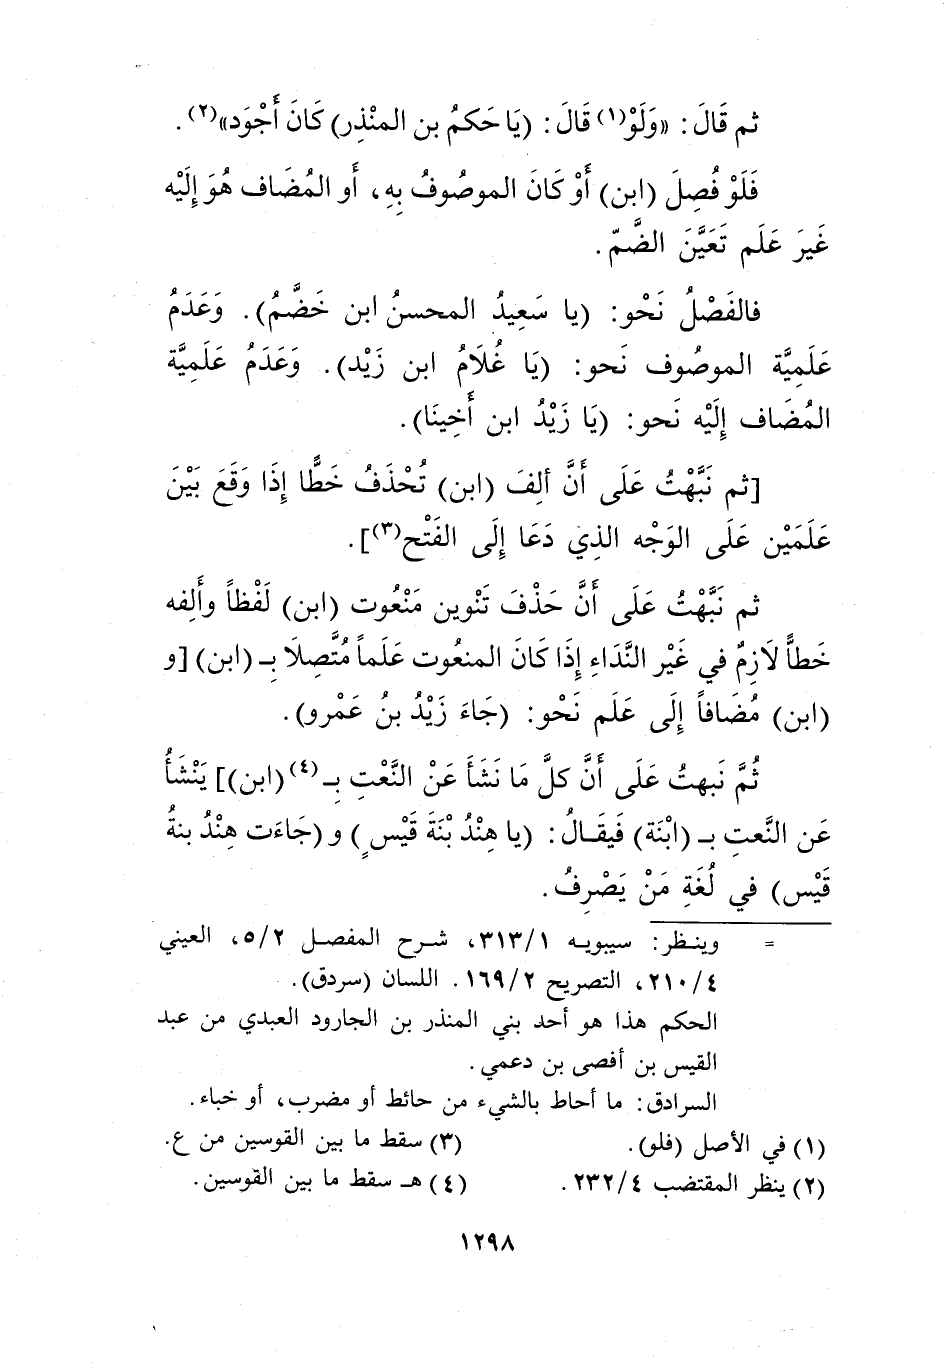 ثم قَالَ: «وَلَوْ(١) قَالَ: (يَا حَكمُ بن المنْذِر) كَانَ أَجْوَد»(٢).
فَلَوْ فُصِلَ (ابن) أَوْ كَانَ الموصُوفُ بِهِ، أَو المُضَاف هُوَ إِلَيْه
غَيرَ عَلَم تَعَيَّنَ الضَّمّ.
فالفَصْلُ نَحْو: (يا سَعِيدُ المحسنُ ابن خَضَّمُ). وَعَدَمُ
عَلَمِيَّة الموصُوف نَحو: (يَا غُلَامُ ابن زَيْد). وَعَدَمُ عَلَمِيَّة
المُضَاف إِلَيْه نَحو: (يَا زَيْدُ ابن أَخِينَا).
[ثم نَبَّهْتُ عَلَى أَنَّ ألِفَ (ابن) تُحْذَفُ خَطًّا إِذَا وَقَعَ بَيْنَ
عَلَمَيْن عَلَى الوَجْه الذِي دَعَا إِلَى الفَتْح(٣)].
ثم نَبَّهْتُ عَلَى أَنَّ حَذْفَ تَنْوين مَنْعُوت (ابن) لَفْظاً وأَلِفه
خَطاًّ لَازِمٌ في غَيْر النَّدَاءِ إِذَا كَانَ المنعُوت عَلَماً مُتَّصِلَا بـ (ابن) [و
(ابن) مُضَافاً إِلَى عَلَم نَحْو: (جَاءَ زَيْدُ بنُ عَمْرو).
ثُمَّ نَبهتُ عَلَى أَنَّ كلَّ مَا نَشَأَ عَنْ النَّعْتِ بـ(٤) (ابن)] يَنْشَأُ
عَن النَّعتِ بـ (ابْنَة) فَيقَالُ: (يا هِنْدُ بْنَةَ قَيْسٍ) و (جَاءَت هِنْدُ بنةُ
قَيْس) في لُغَةِ مَنْ يَصْرِفُ.
= وينظر: سيبويه ٣١٣/١، شرح المفصل ٥/٢، العيني
٢١٠/٤، التصريح ١٦٩/٢. اللسان (سردق).
الحكم هذا هو أحد بني المنذر بن الجارود العبدي من عبد
القيس بن أفصى بن دعمي.
السرادق: ما أحاط بالشيء من حائط أو مضرب، أو خباء.
(١) في الأصل (فلو). (٣) سقط ما بين القوسين من ع.
(٢) ينظر المقتضب ٢٣٢/٤. (٤) هـ سقط ما بين القوسين.
١٢٩٨